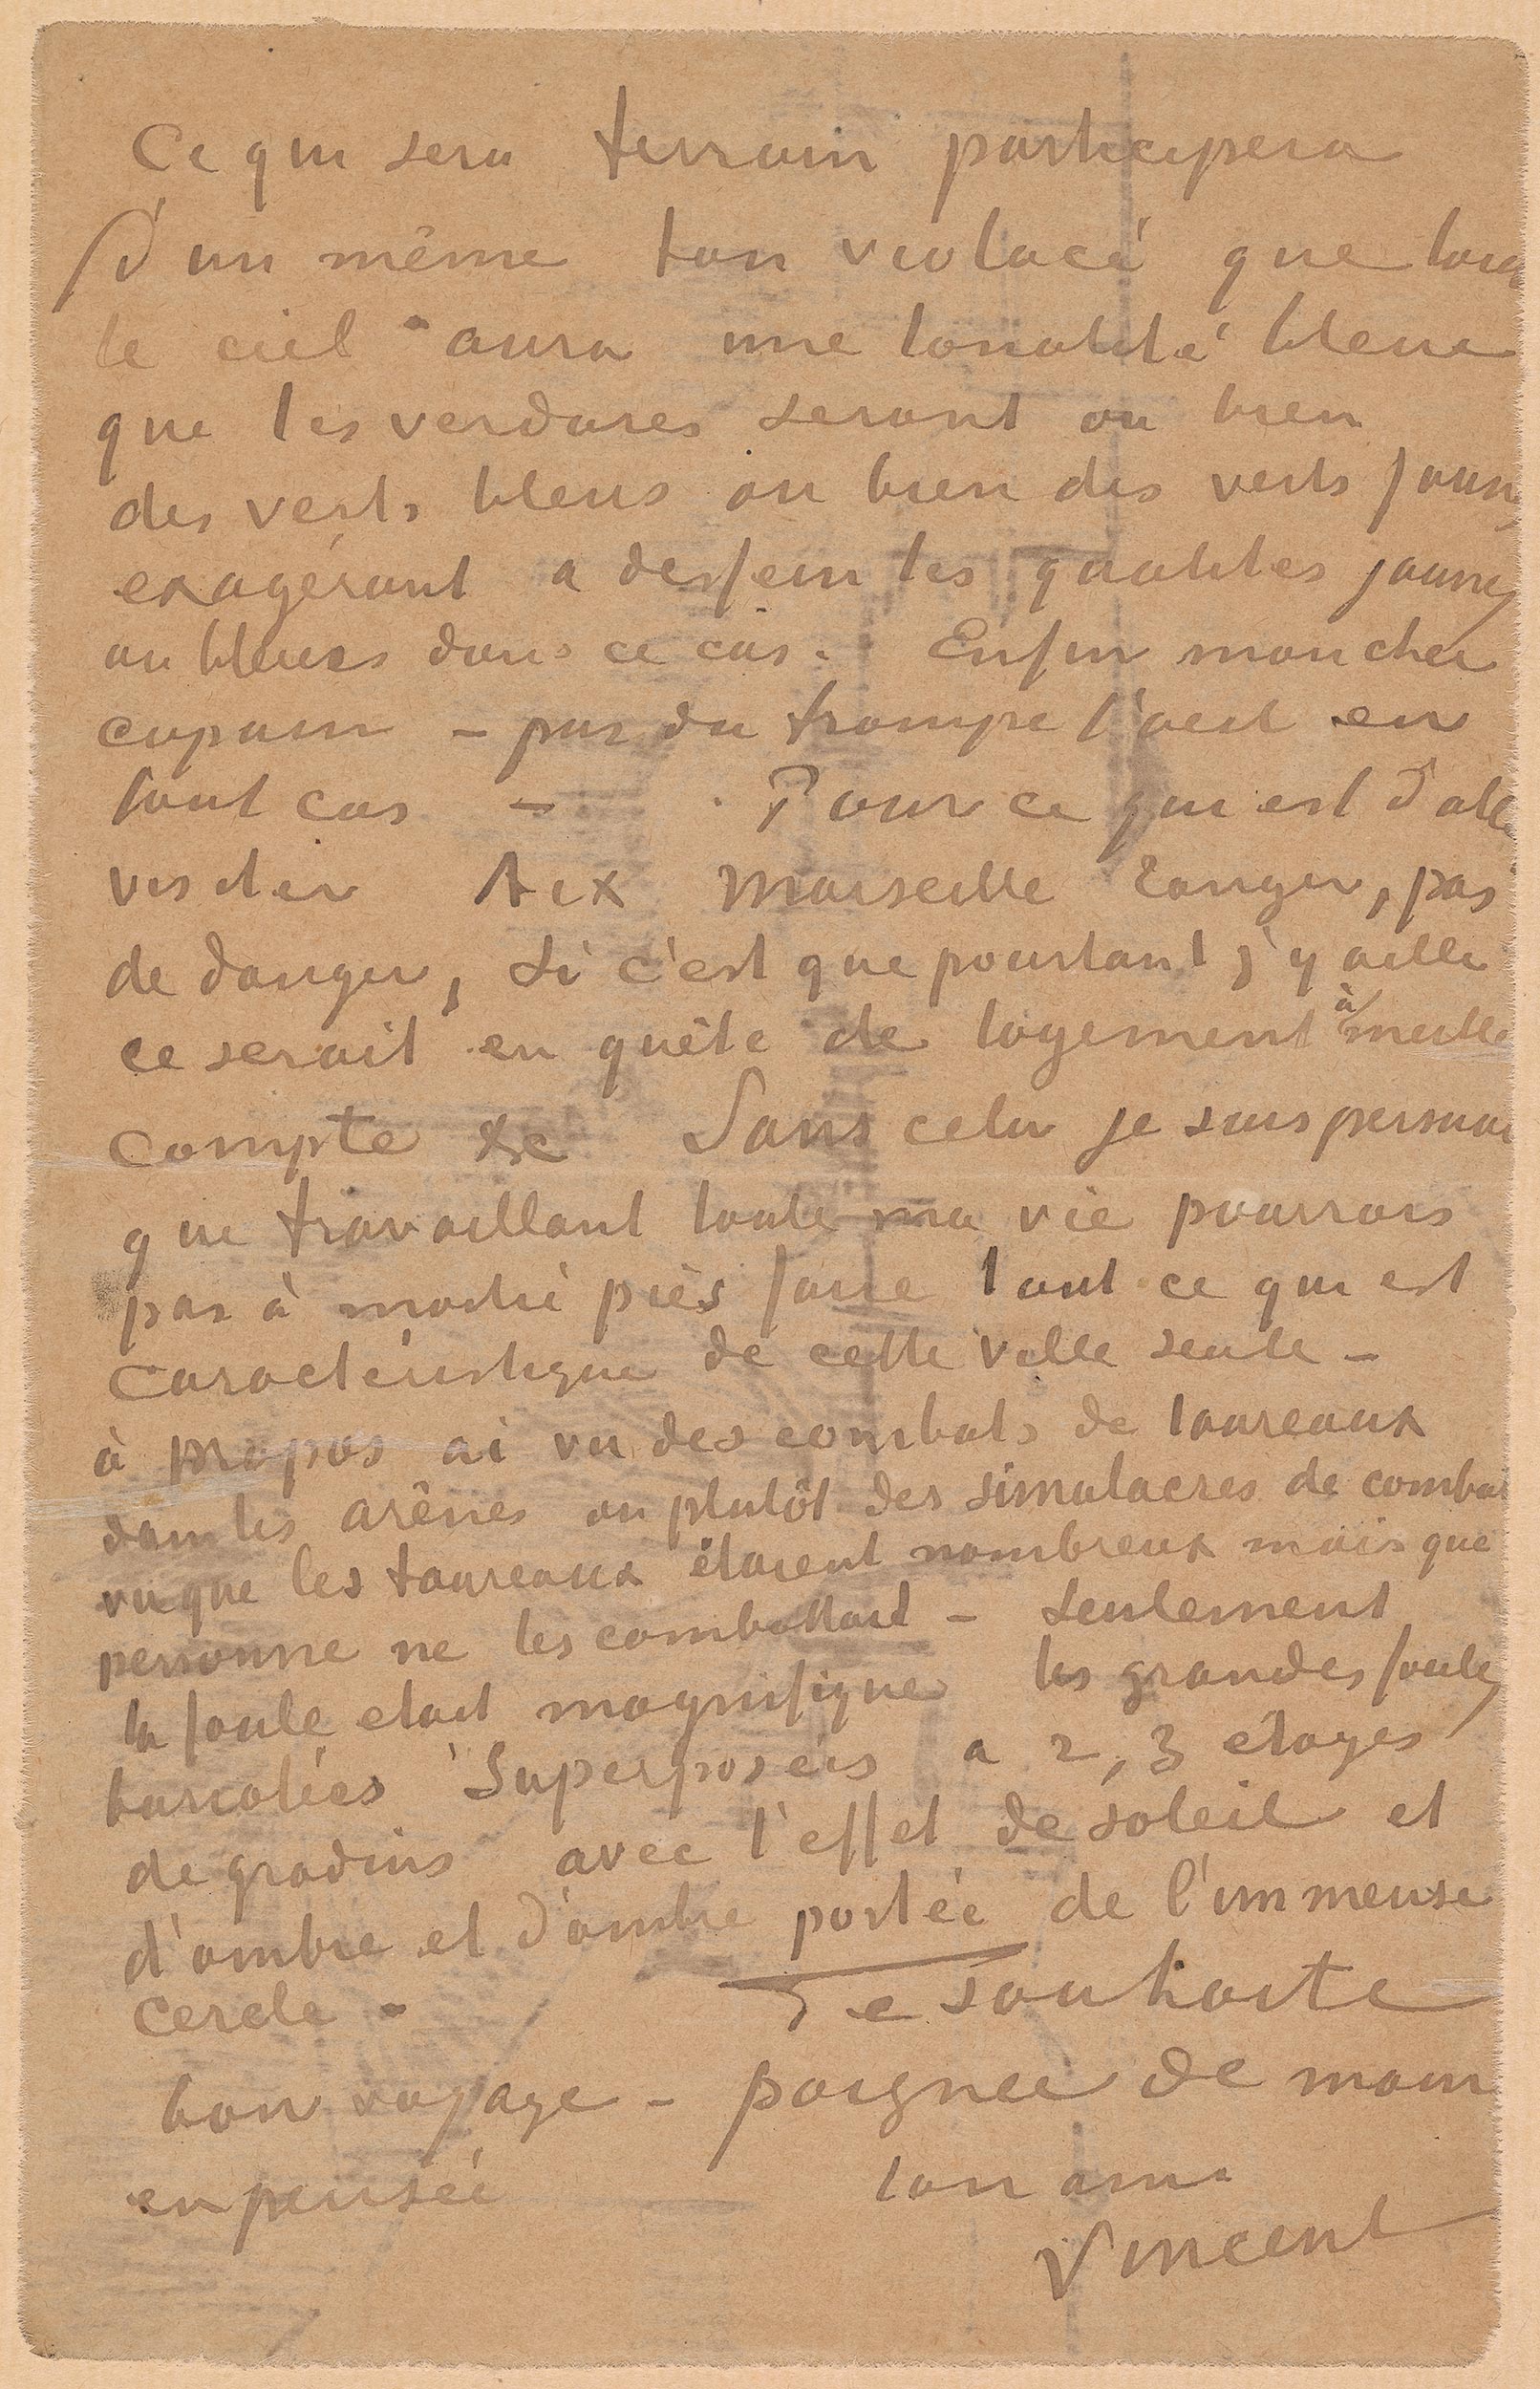 Ce qui sera terrain participera
d'un même ton violacé que tout
le ciel aura une tonalité bleue
que les verdures seront ou bien
des verts bleus ou bien des verts jaunes
exagérant a dessein les qualités jaunes
ou bleues dans ce cas. Enfin mon cher
copain – pas du trompe l'œil en
tout cas – Pour ce qui est d'aller
visiter Aix Marseille Tanger, pas
de danger, si c'est que pourtant j'y aille
ce serait en quête de logement à meille
compte &c Sans cela je suis persuad
que travaillant toute ma vie pourrais
pas à moitié près faire tout ce qui est
caractéristique de cette ville seule –
à propos ai vu des combats de taureaux
dans les arènes ou plutôt des simulacres de combat
vu que les taureaux étaient nombreux mais que
personne ne les combattait – seulement
la foule etait magnifique les grandes foules
bariolées superposées a 2, 3 etages
de gradins avec l'effet de soleil et
d'ombre et d'ombre portée de l'immense
cercle – Te souhaite
bon voyage – poignee de main
en pensée ton ami
Vincent